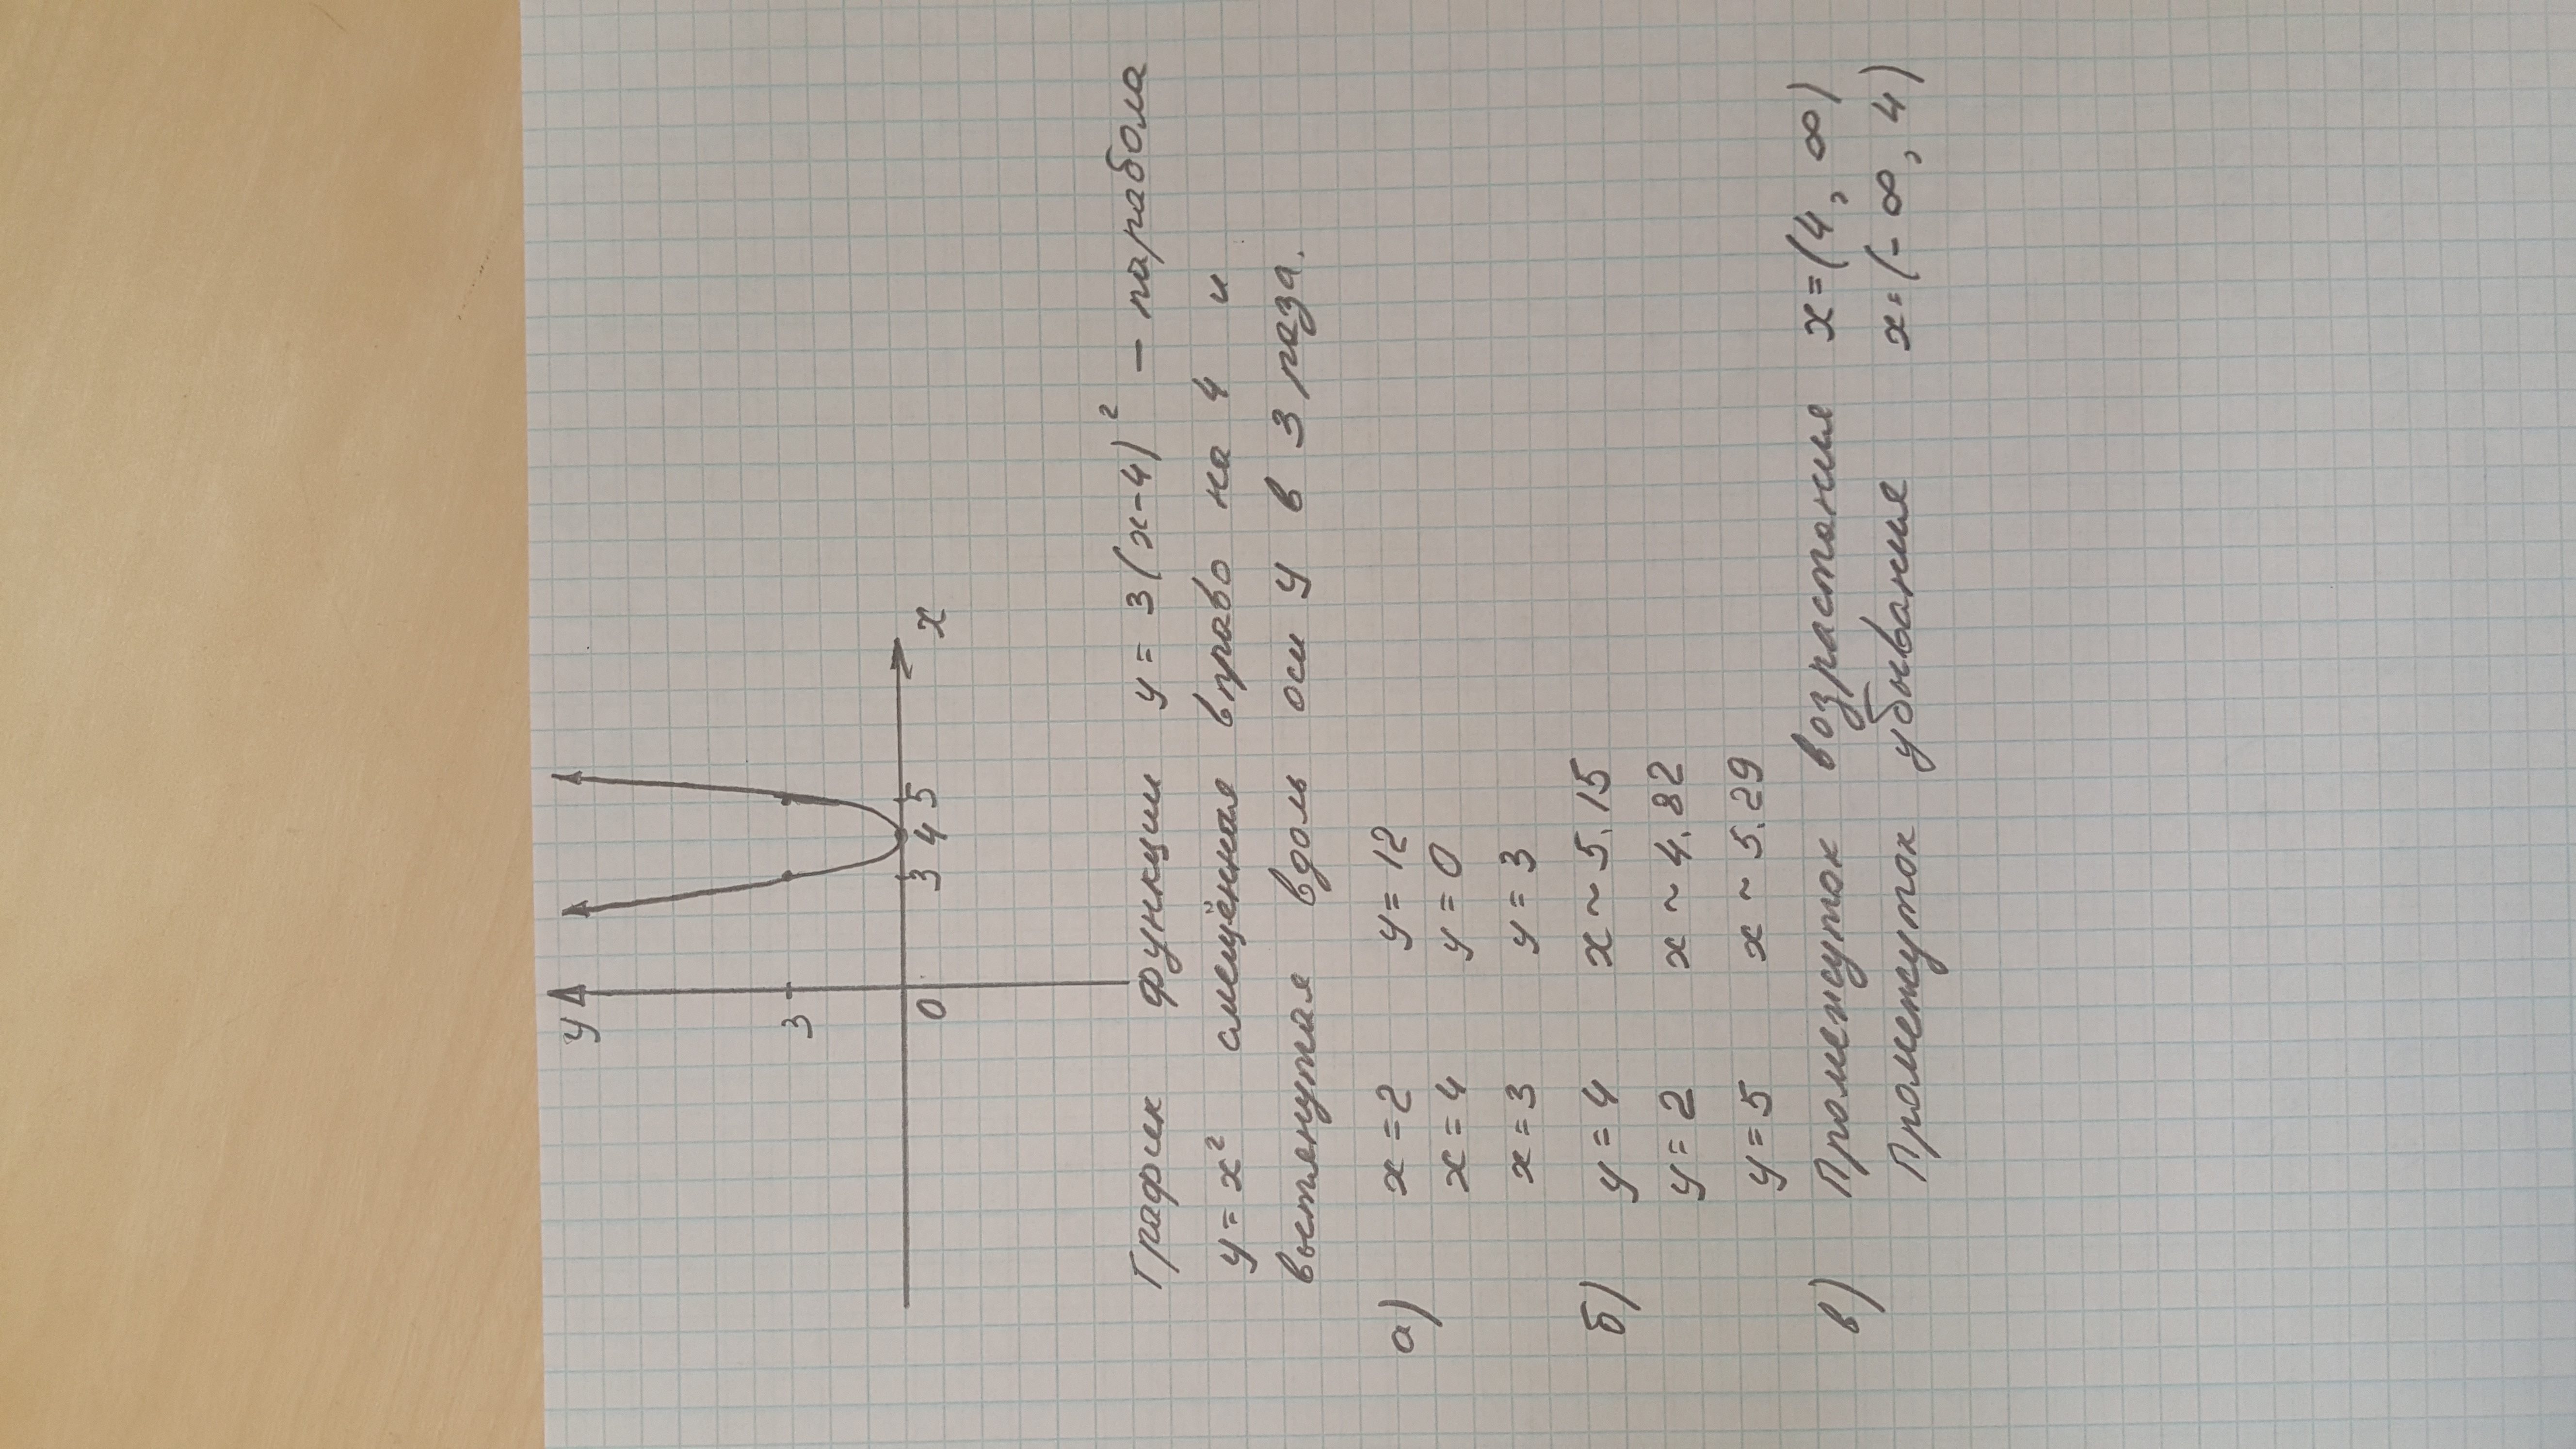 y
3
0 3 4 5 x
График функции y = 3(x-4)² - парабола
y = x² смещённая вправо на 4 и
вытянутая вдоль оси y в 3 раза.
а) x = 2 y = 12
x = 4 y = 0
x = 3 y = 3
б) y = 4 x ~ 5.15
y = 2 x ~ 4.82
y = 5 x ~ 5.29
в) Промежуток возрастания x = (4, ∞)
Промежуток убывания x = (- ∞, 4)